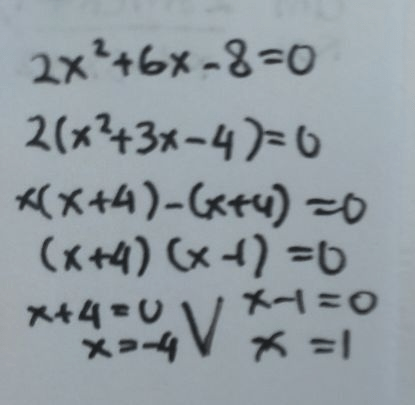 2x²+6x-8=0
2(x²+3x-4)=0
x(x+4)-(x+4)=0
(x+4)(x-1)=0
x+4=0 ∨ x-1=0
x=-4 x=1